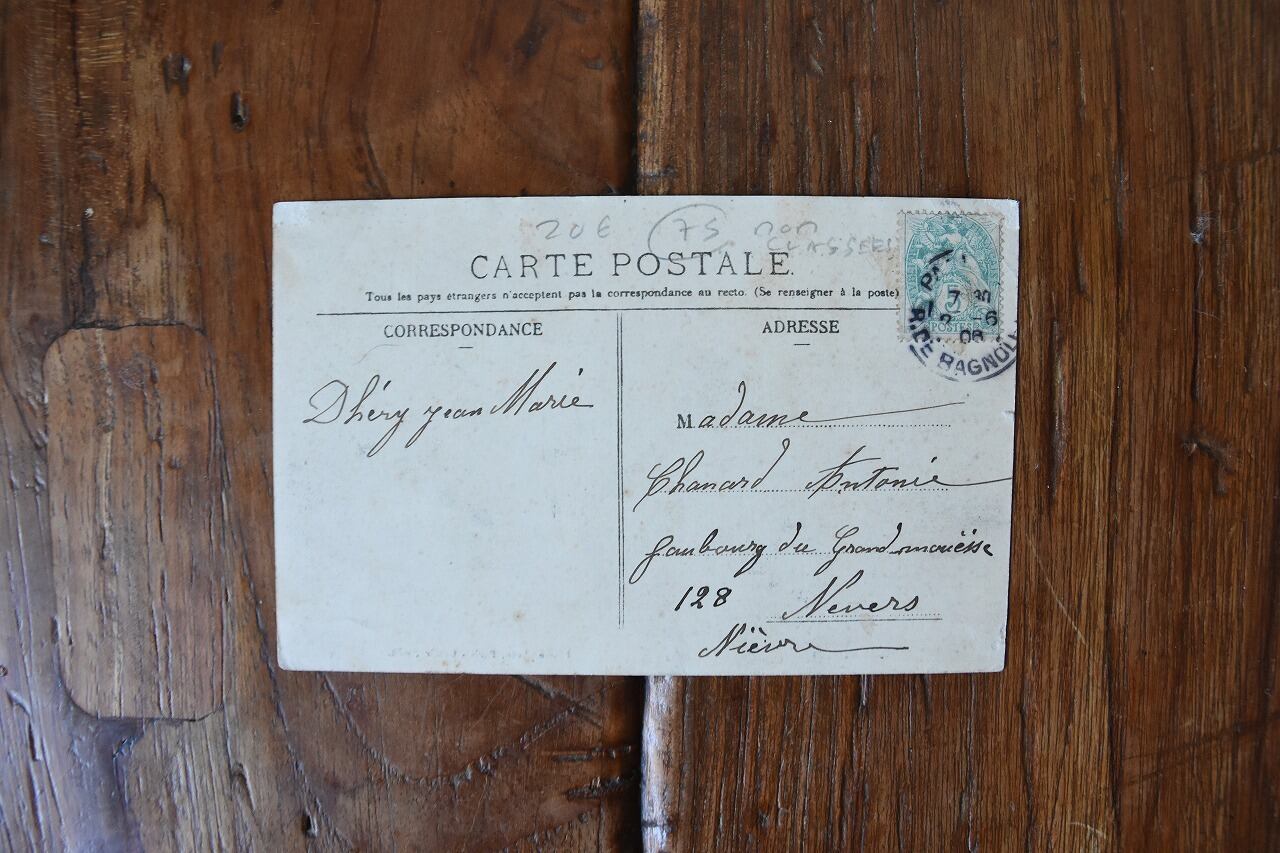 20€ 75 non
CLASSEES
CARTE POSTALE.
Tous les pays étrangers n'acceptent pas la correspondance au recto. (Se renseigner à la poste)
CORRESPONDANCE
ADRESSE
Dhéry Jean Marie
Madame
Chanard Antonie
faubourg du Grand mouësse
128 Nevers
Nièvre
5
POSTES
7
6
06
R. DE BAGNOL